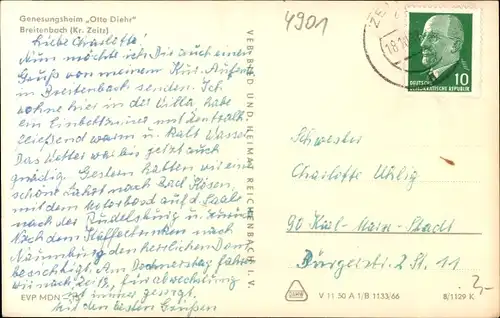 Genesungsheim „Otto Diehr"
Breitenbach (Kr. Zeitz)
Liebe Charlotte!
Nun möchte ich Dir auch einen
Gruß von meinem Kur-Aufent
in Breitenbach senden. Ich
wohne hier in der Villa, habe
ein Einbettzimmer mit Zentralh.
fließend warm u. kalt Wasser
Das Wetter war bis jetzt auch
gnädig. Gestern hatten wir eine
schöne Fahrt nach Bad Kösen,
mit dem Motorboot auf d. Saale
nach der Rudelsburg u. zurück
Nach dem Kaffeetrinken nach
Naumburg den herrlichen Dom
besichtigt. Am Donnerstag fahren
wir nach Zeitz, für Abwechslung
ist immer gesorgt.
Mit den besten Grüßen
EVP MDN
VEB BILD UND HEIMAT REICHENBACH I. V.
4901
ZE
18.10
DEUTSCHE
DEMOKRATISCHE REPUBLIK
10
Schwester
Charlotte Uhlig
90 Karl-Marx-Stadt
Bürgerstr. 2 St. 11
V 11 50 A 1/B 1133/66
8/1129 K
2,-